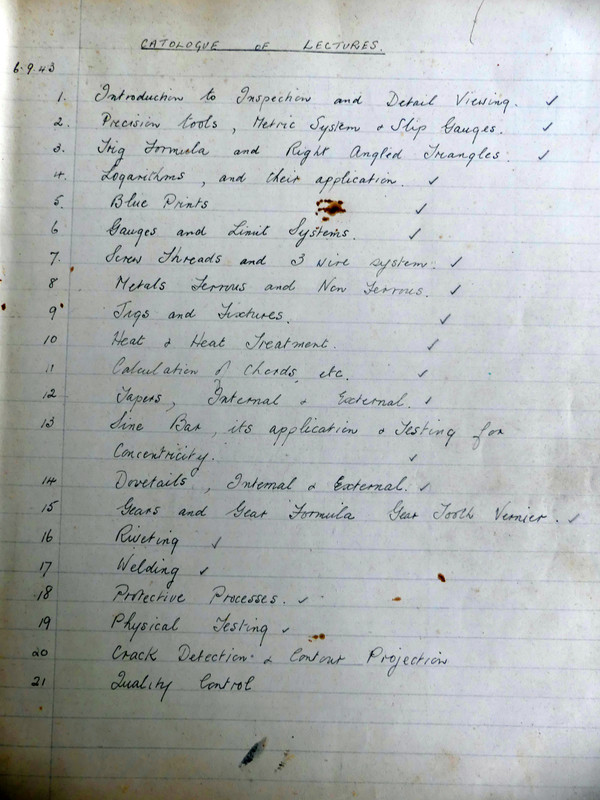 CATOLOGUE OF LECTURES.
6.9.43
1. Introduction to Inspection and Detail Viewing. ✓
2. Precision tools, Metric System & Slip Gauges. ✓
3. Trig Formula and Right Angled Triangles. ✓
4. Logarithms, and their application. ✓
5. Blue Prints ✓
6 Gauges and Limit Systems. ✓
7. Screw Threads and 3 wire system. ✓
8 Metals Ferrous and Non Ferrous. ✓
9 Jigs and Fixtures. ✓
10 Heat & Heat Treatment. ✓
11 Calculation of Chords, etc. ✓
12 Tapers, Internal & External. ✓
13 Sine Bar, its application & Testing for
Concentricity. ✓
14 Dovetails, Internal & External. ✓
15 Gears and Gear Formula Gear Tooth Vernier. ✓
16 Riveting ✓
17 Welding ✓
18 Protective Processes. ✓
19 Physical Testing ✓
20 Crack Detection & Contour Projection
21 Quality Control